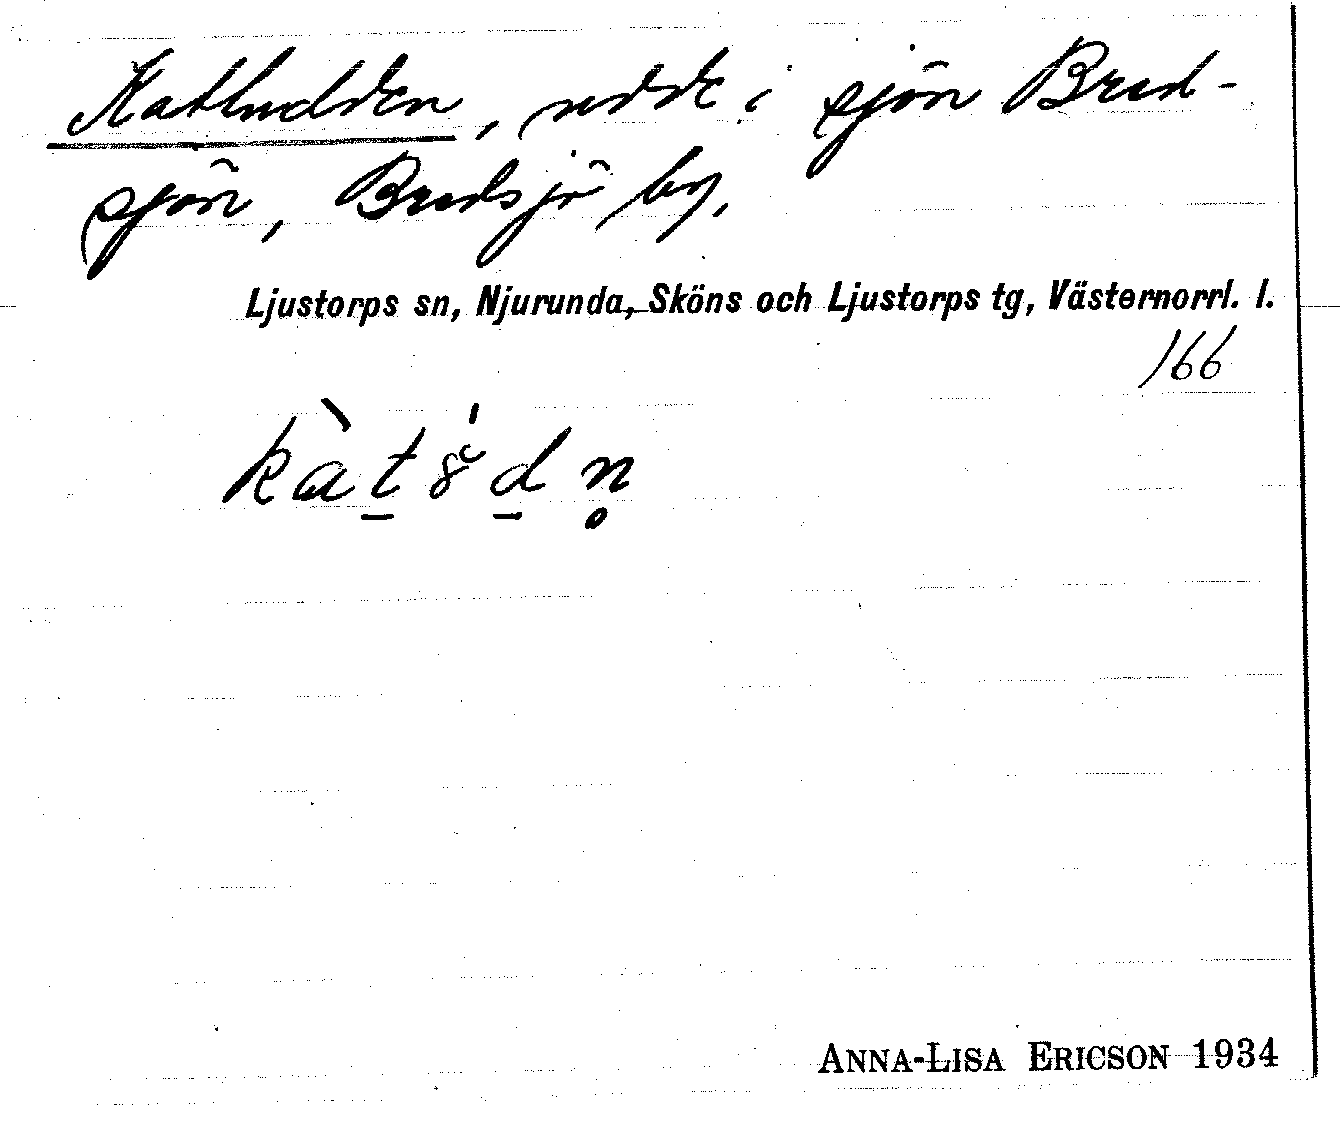 Kathudden, udde i sjön Bred-
sjön, Bredsjö by.
Ljustorps sn, Njurunda, Sköns och Ljustorps tg, Västernorrl. l.
166
ANNA-LISA ERICSON 1934